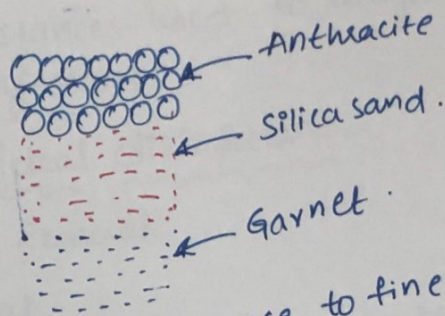 Anthracite
Silica sand.
Garnet.
to fine